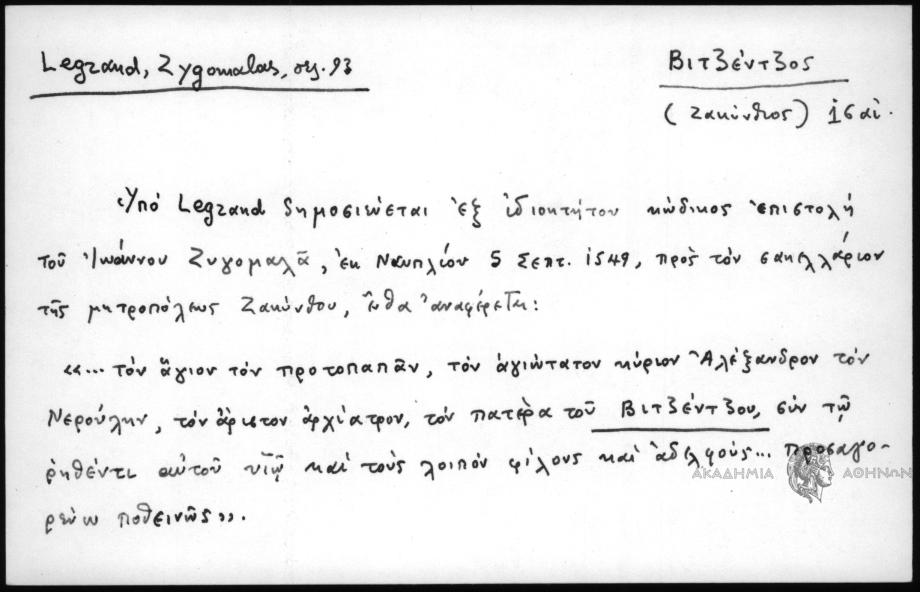 Legrand, Zygomalas, σελ. 93
Βιτζέντζος
(Ζακύνθιος) 16 αἰ.
Ὑπό Legrand δημοσιεύεται ἐξ ἰδιοκτήτου κώδικος ἐπιστολή
τοῦ Ἰωάννου Ζυγομαλᾶ, ἐκ Ναυπλίου 5 Σεπτ. 1549, πρὸς τὸν σακελλάριον
τῆς μητροπόλεως Ζακύνθου, ἔνθα ἀναφέρεται:
«... τόν ἅγιον τόν πρωτοπαπᾶν, τόν ἁγιώτατον κύριον Ἀλέξανδρον τόν
Νερούλην, τόν ἄριστον ἀρχίατρον, τόν πατέρα τοῦ Βιτζέντζου, σύν τῷ
ῥηθέντι αὐτοῦ υἱῷ καί τούς λοιπόν φίλους καί ἀδελφούς... προσαγο-
ρεύω ποθεινῶς».
ΑΚΑΔΗΜΙΑ ΑΘΗΝΩΝ